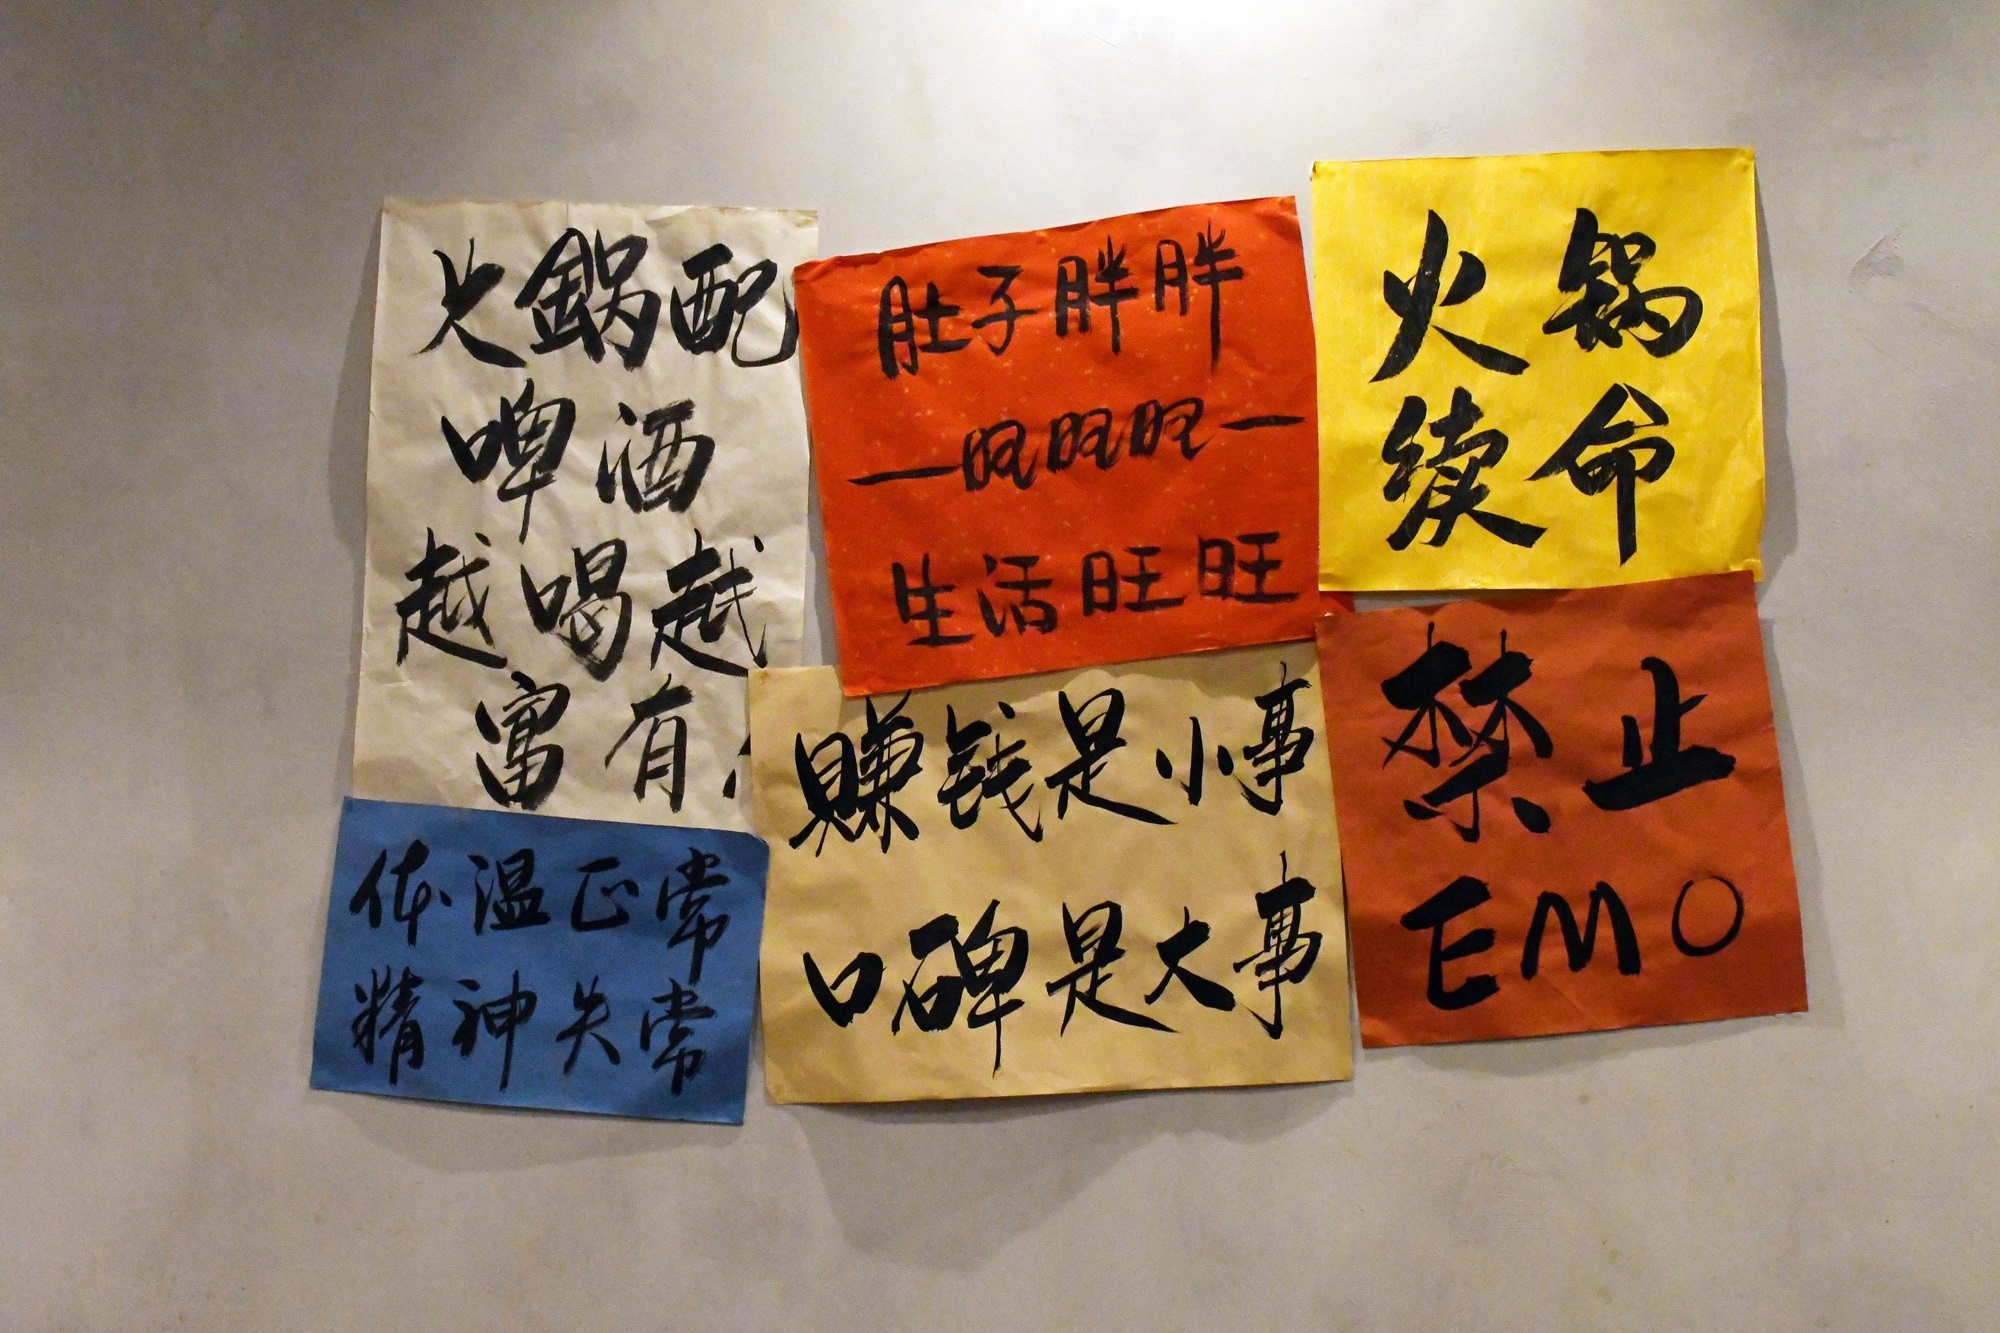 火鍋配
啤酒
越喝越
富有
肚子胖胖
一旺旺旺一
生活旺旺
火锅
续命
体温正常
精神失常
賺钱是小事
口碑是大事
禁止
EMO